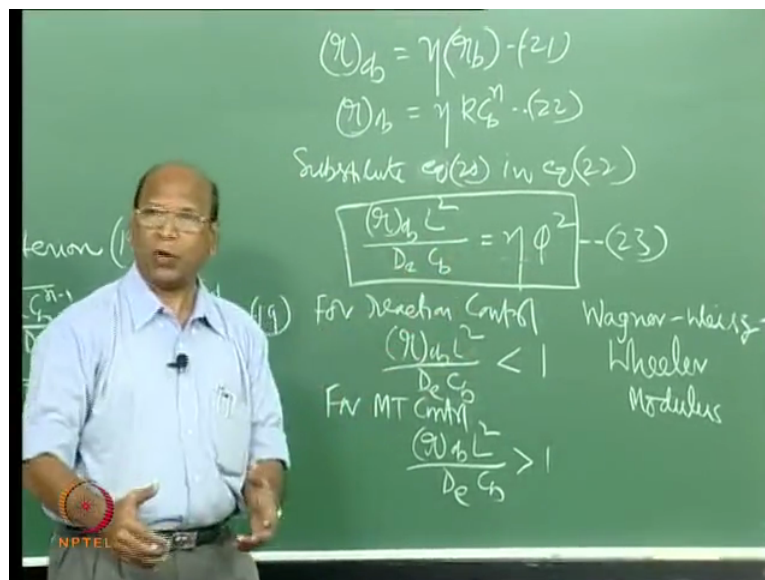 (r)ob = η(rb) --(21)
(r)ob = η k Cb^n --(22)
Substitute eq(20) in eq(22)
(r)ob L² / De Cb = η φ² --(23)
For reaction Control
(r)ob L² / De Cb < 1
For MT Control
(r)ob L² / De Cb > 1
Wagner-Weisz-
Wheeler
Modulus
terion (
Cb^n-1
D
(19)
NPTEL